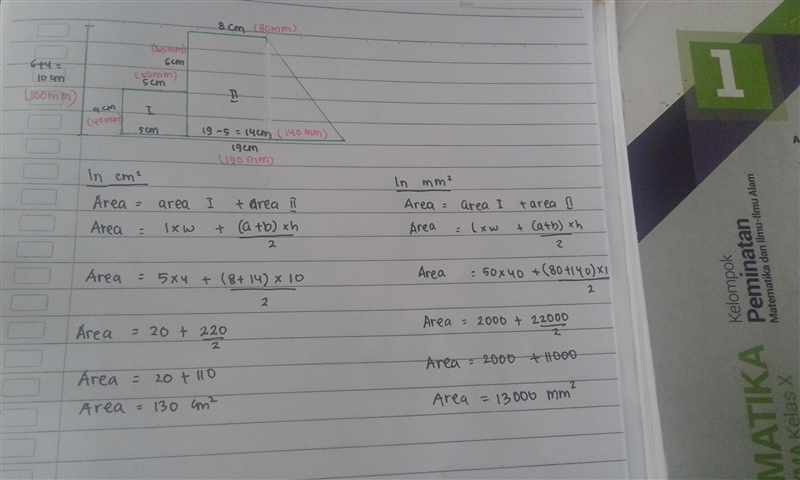 8 cm (80mm)
(60mm)
6cm
6+4=
10cm
(100mm)
(50mm)
5cm
4cm
(40mm)
I
II
5cm
19-5=14cm (140mm)
19cm
(190mm)
In cm²
Area = area I + area II
Area = l×w + (a+b)×h
2
Area = 5×4 + (8+14)×10
2
Area = 20 + 220
2
Area = 20+110
Area = 130 cm²
In mm²
Area = area I + area II
Area = l×w + (a+b)×h
2
Area = 50×40 + (80+140)×1
2
Area = 2000 + 22000
2
Area = 2000 + 11000
Area = 13000 mm²
1
Kelompok
Peminatan
Matematika dan Ilmu-Ilmu Alam
MATIKA
MA Kelas X